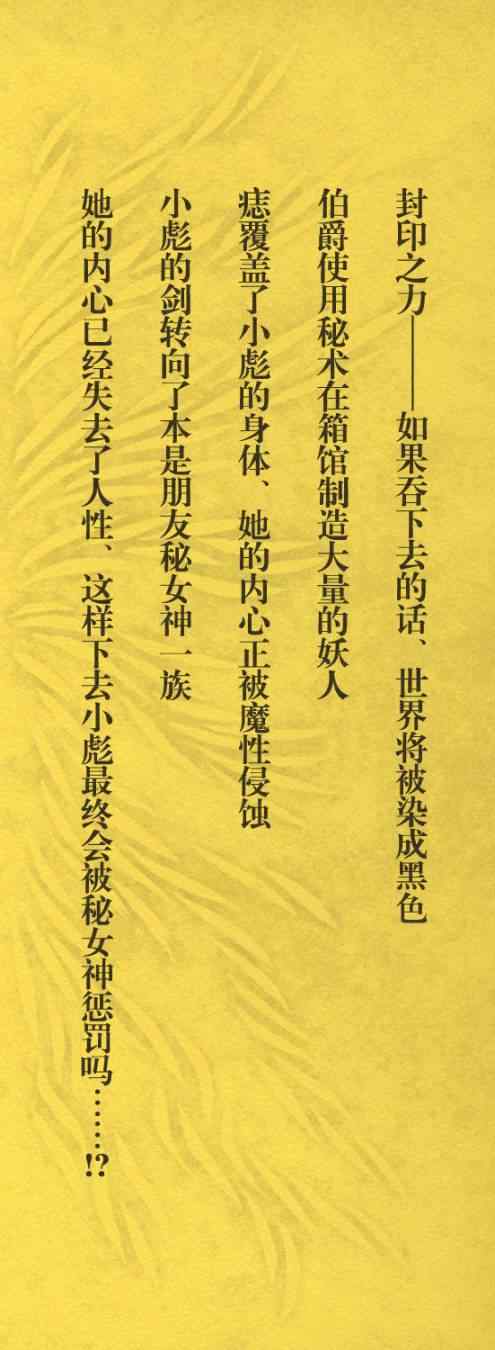 封印之力——如果吞下去的话、世界将被染成黑色
伯爵使用秘术在箱馆制造大量的妖人
痣覆盖了小彪的身体、她的内心正被魔性侵蚀
小彪的剑转向了本是朋友秘女神一族
她的内心已经失去了人性、这样下去小彪最终会被秘女神惩罚吗……!?